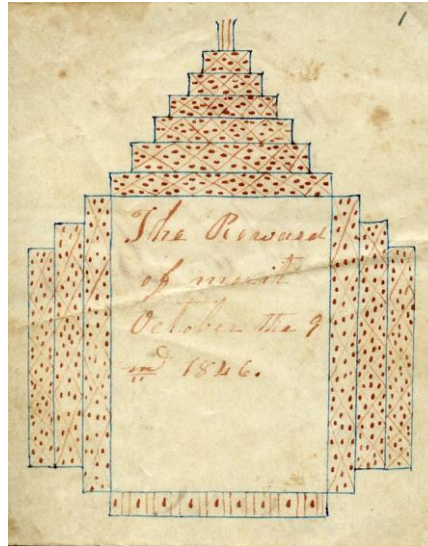 1
The Reward
of merit
October the 9
md 1846.